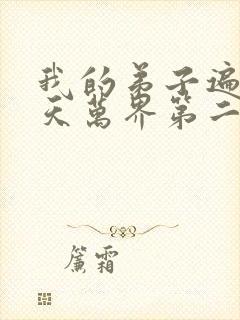 我的弟子遍
天萬界第二
簾霜